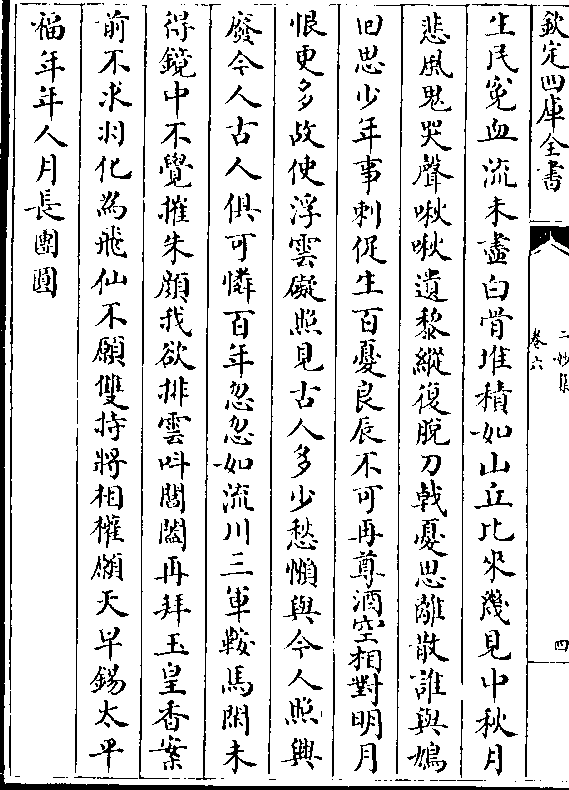 欽定四庫全書
二妙集
卷六
四
生民寃血流未盡白骨堆積如山丘比來幾見中秋月
悲風鬼哭聲啾啾遺黎縱復脱刀㦸憂思離散誰與鳩
囘思少年事刺促生百憂良辰不可再尊酒空相對明月
恨更多故使浮雲礙照見古人多少愁懶與今人照興
廢今人古人俱可憐百年忽忽如流川三軍鞍馬閑未
得鏡中不覺摧朱顔我欲排雲叫閶闔再拜玉皇香案
前不求羽化為飛仙不願雙持將相權願天早錫太平
福年年人月長團圓